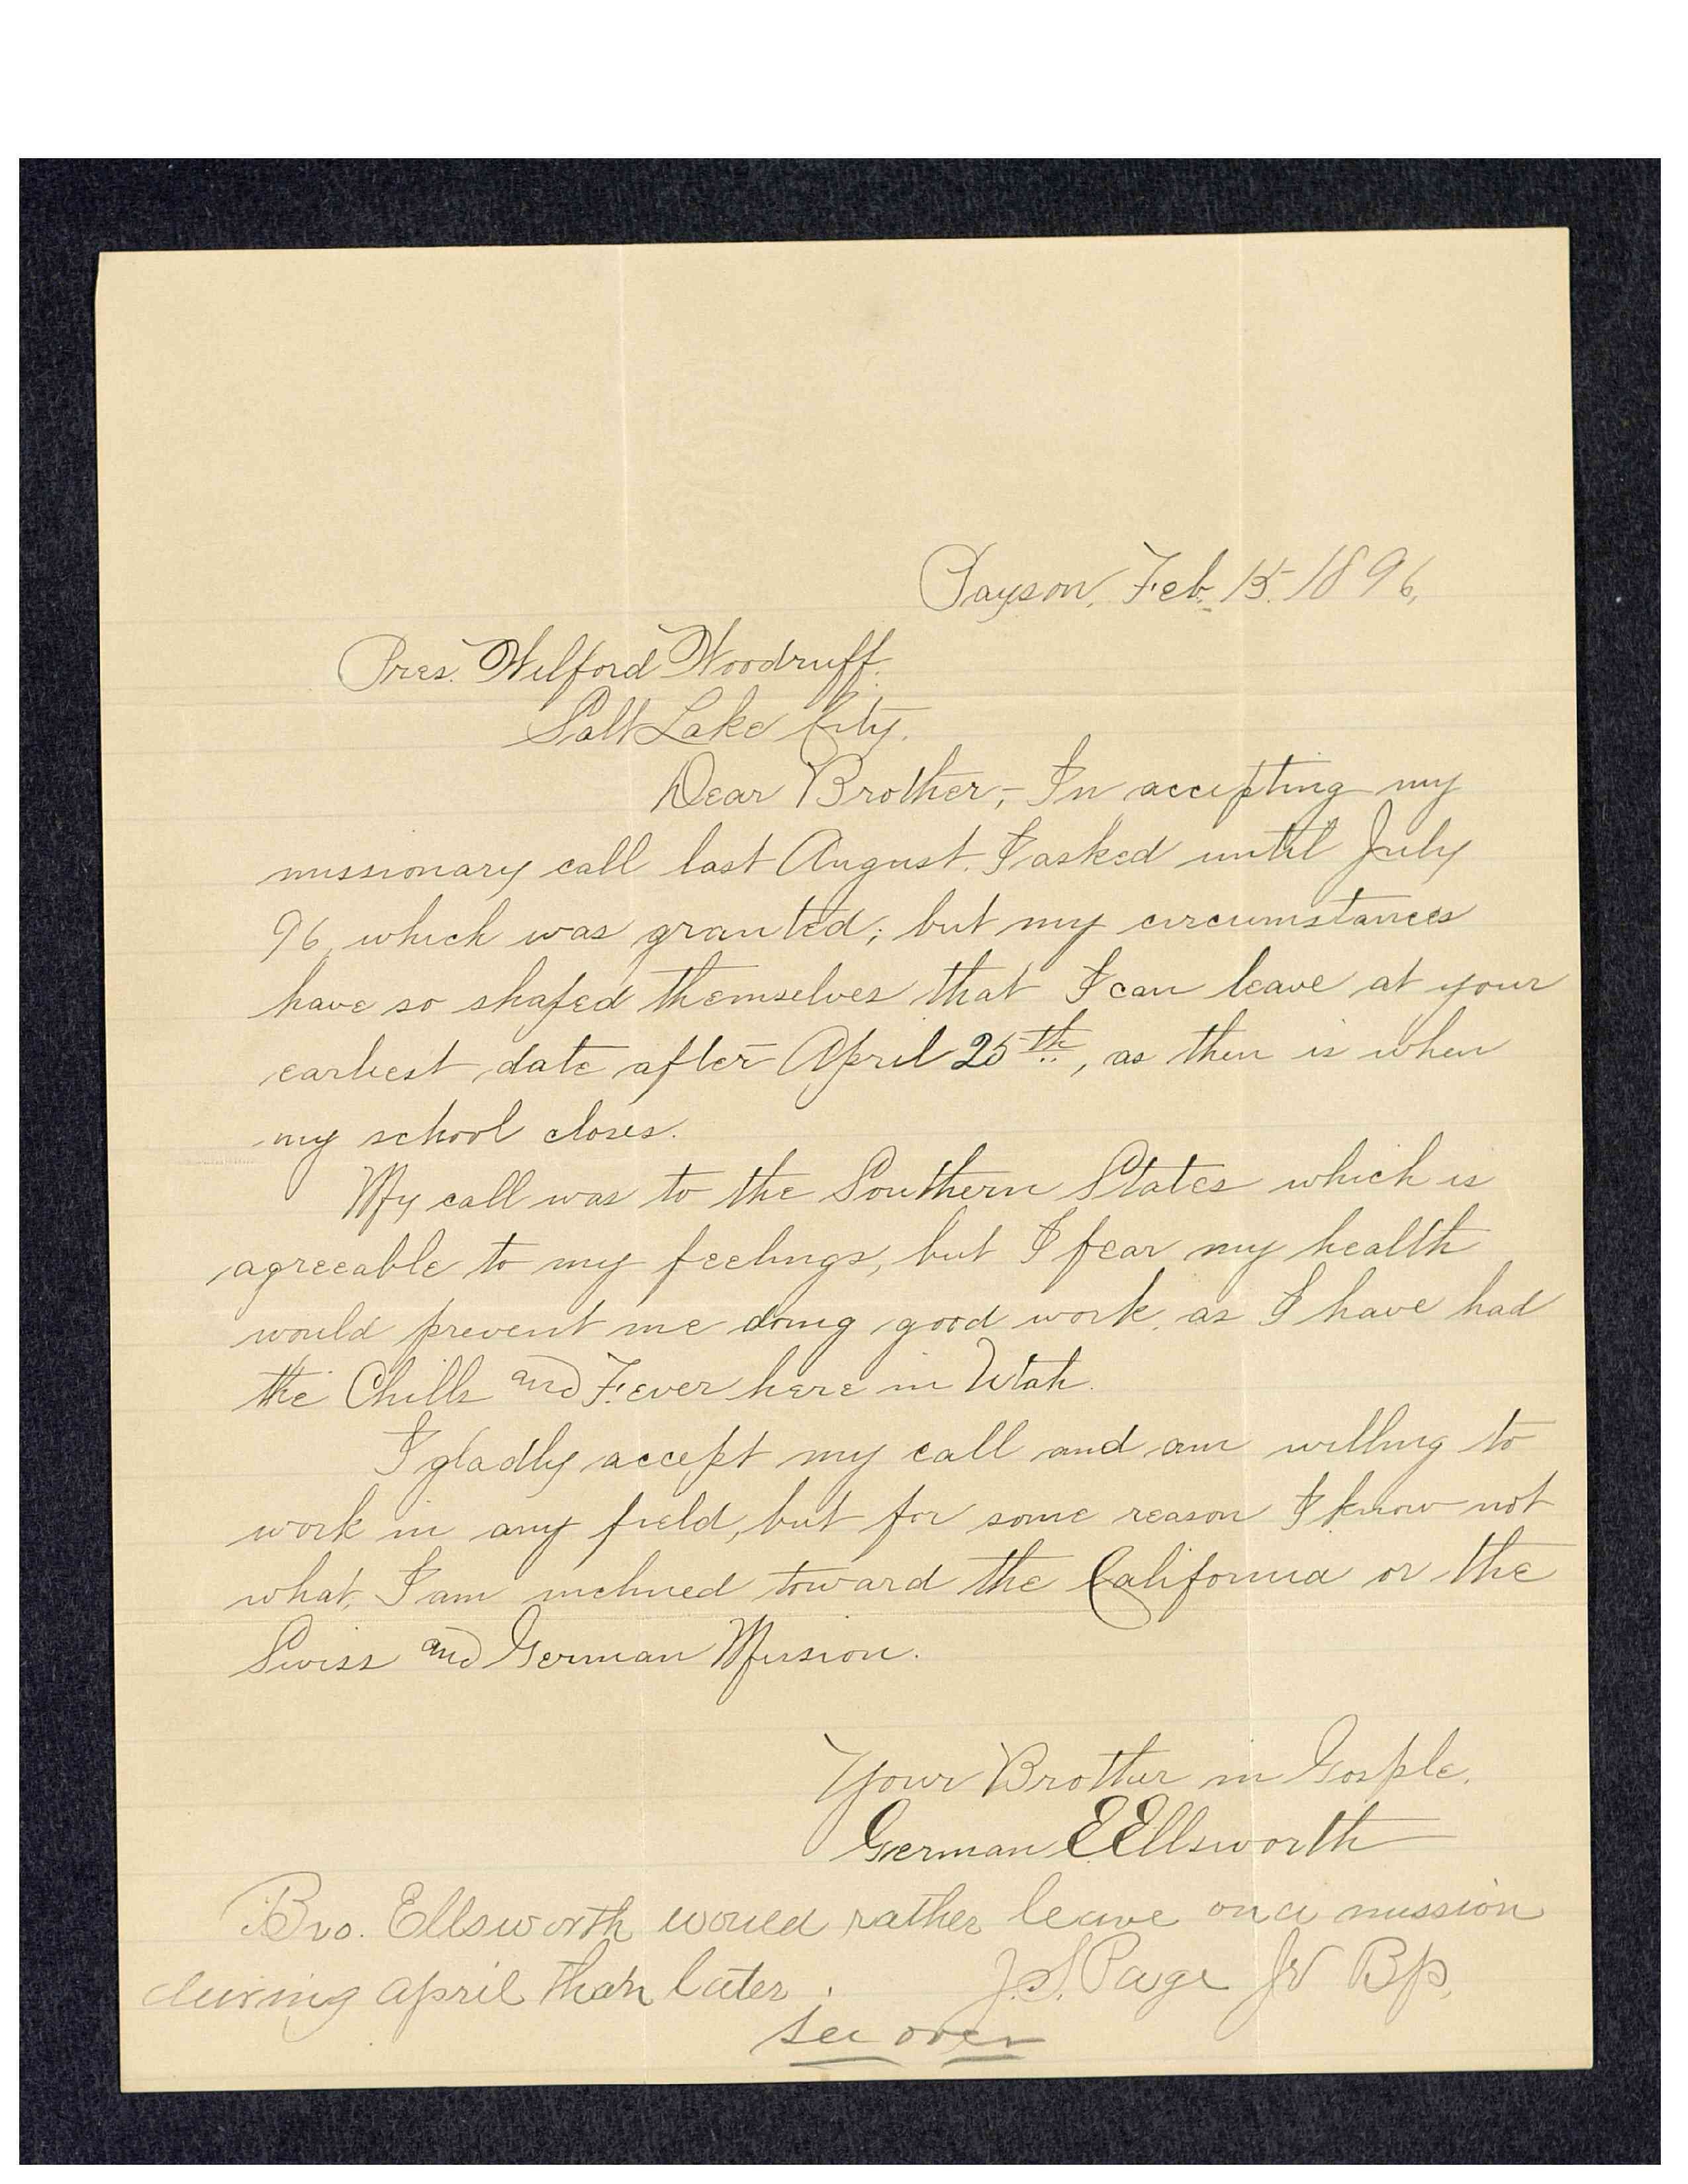 Payson, Feb. 15. 1896,
Pres. Wilford Woodruff.
Salt Lake City.
Dear Brother;- In accepting my
missionary call last August. I asked until July
96, which was granted; but my circumstances
have so shaped themselves that I can leave at your
earliest date after April 25th, as then is when
my school closes.
My call was to the Southern States which is
agreeable to my feelings, but I fear my health
would prevent me doing good work, as I have had
the Chills and Fever here in Utah.
I gladly accept my call and am willing to
work in any field, but for some reason I know not
what, I am inclined toward the California or the
Swiss and German Mission.
Your Brother in Gosple.
German E Ellsworth
Bro. Ellsworth would rather leave on a mission
during april than later. J.S. Page Jr Bp.
see over